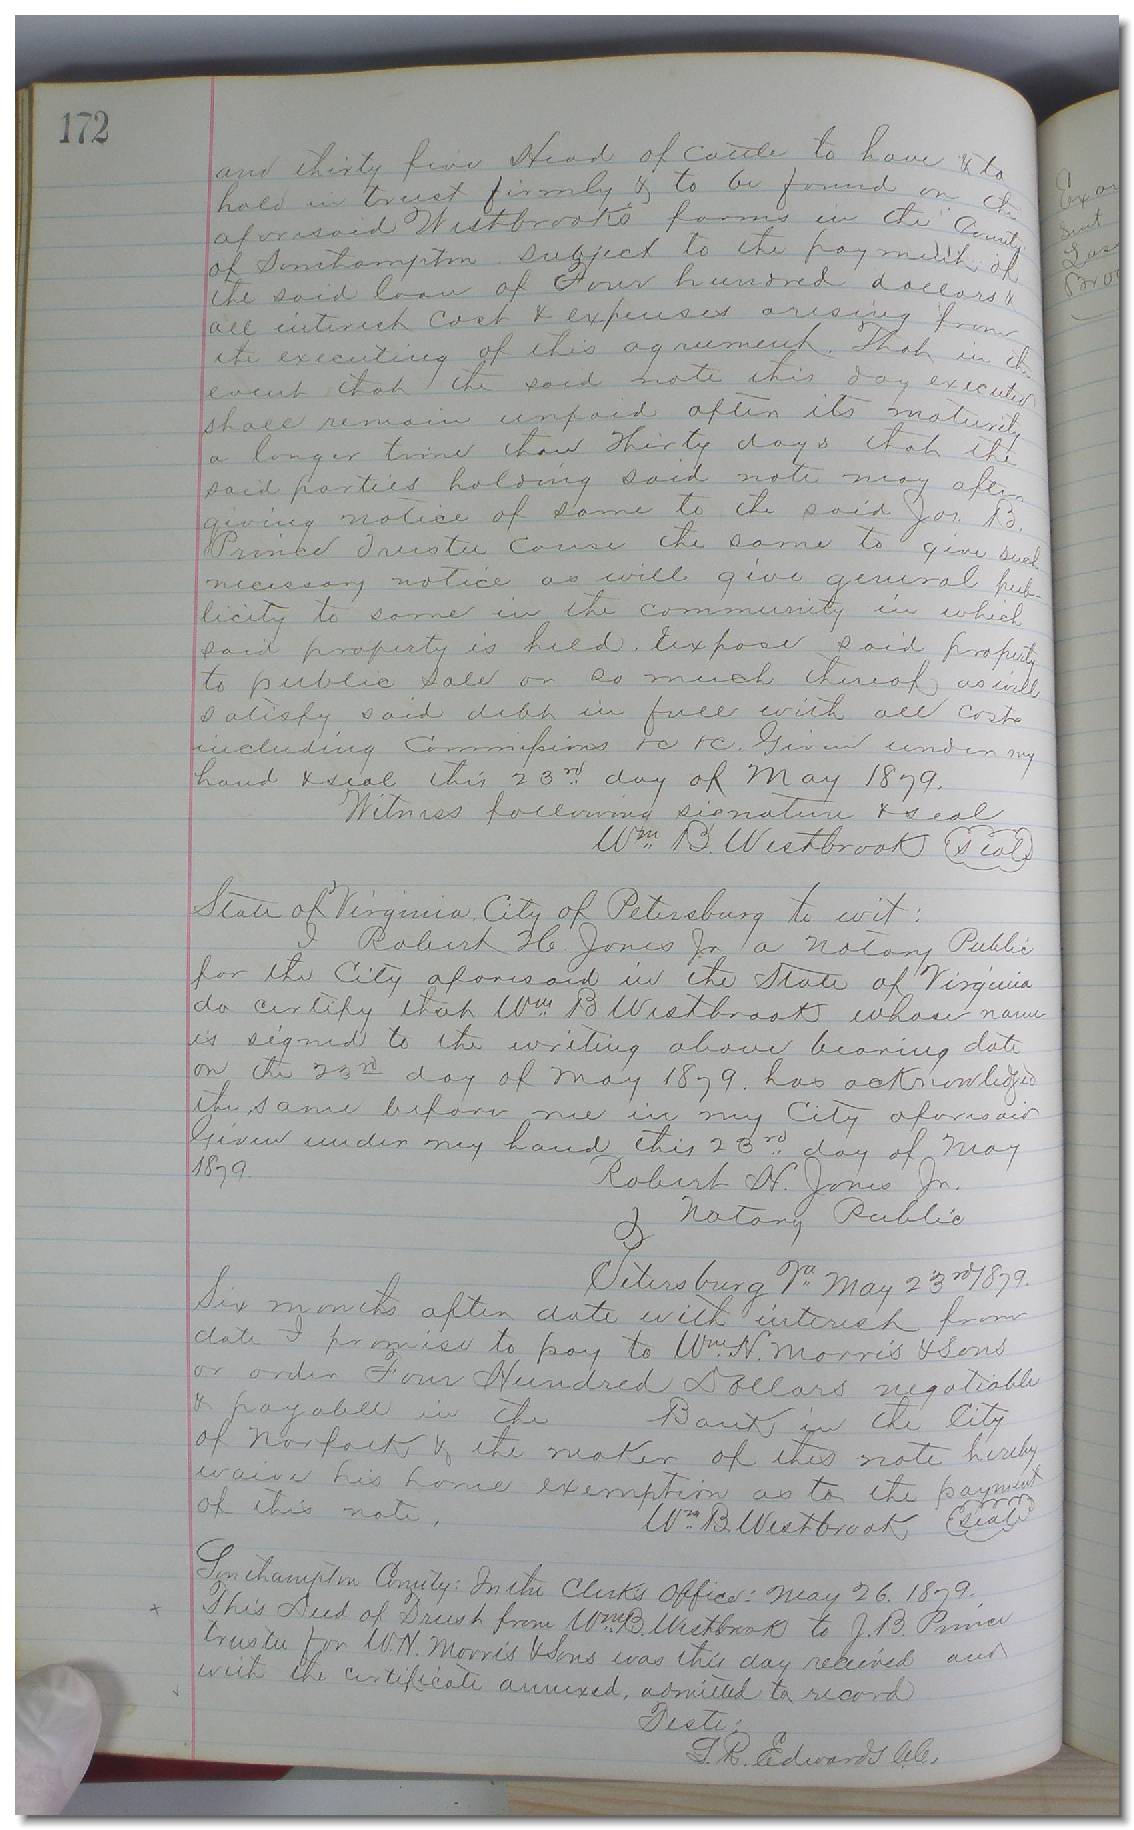 172
and thirty five Head of cattle to have & to
hold in trust firmly & to be found on the
aforesaid Westbrooks farms in the County
of Southampton subject to the payment of
the said loan of Four hundred dollars &
all interest cost & expenses arising from
the executing of this agreement. That in the
event that the said note this day executed
shall remain unpaid after its maturity
a longer time than Thirty days that the
said parties holding said note may after
giving notice of same to the said Jos. B.
Prince Trustee cause the same to give such
necessary notice as will give general pub-
licity to same in the community in which
said property is held. Expose said property
to public sale or so much thereof as will
satisfy said debt in full with all costs
including Commissions &c &c. Given under my
hand & seal this 23rd day of May 1879.
Witness following signature & seal
Wm B. Westbrook (Seal)
State of Virginia City of Petersburg to wit:
I Robert H. Jones Jr a Notary Public
for the City aforesaid in the State of Virginia
do certify that Wm B Westbrook whose name
is signed to the writing above bearing date
on the 23rd day of May 1879. has acknowledged
the same before me in my City aforesaid
Given under my hand this 23rd day of May
1879.
Robert H. Jones Jr.
Notary Public
Petersburg Va May 23rd 1879.
Six months after date with interest from
date I promise to pay to Wm N. Morris & Sons
or order Four Hundred Dollars negotiable
& payable in the Bank in the City
of Norfolk & the maker of this note hereby
waive his home exemption as to the payment
of this note.
Wm B. Westbrook (Seal)
Southampton County: In the Clerks Office: May 26. 1879.
x This Deed of Trust from Wm B. Westbrook to J. B. Prince
trustee for W. N. Morris & Sons was this day received and
with the certificate annexed, admitted to record
Teste:
L. R. Edwards C.C.